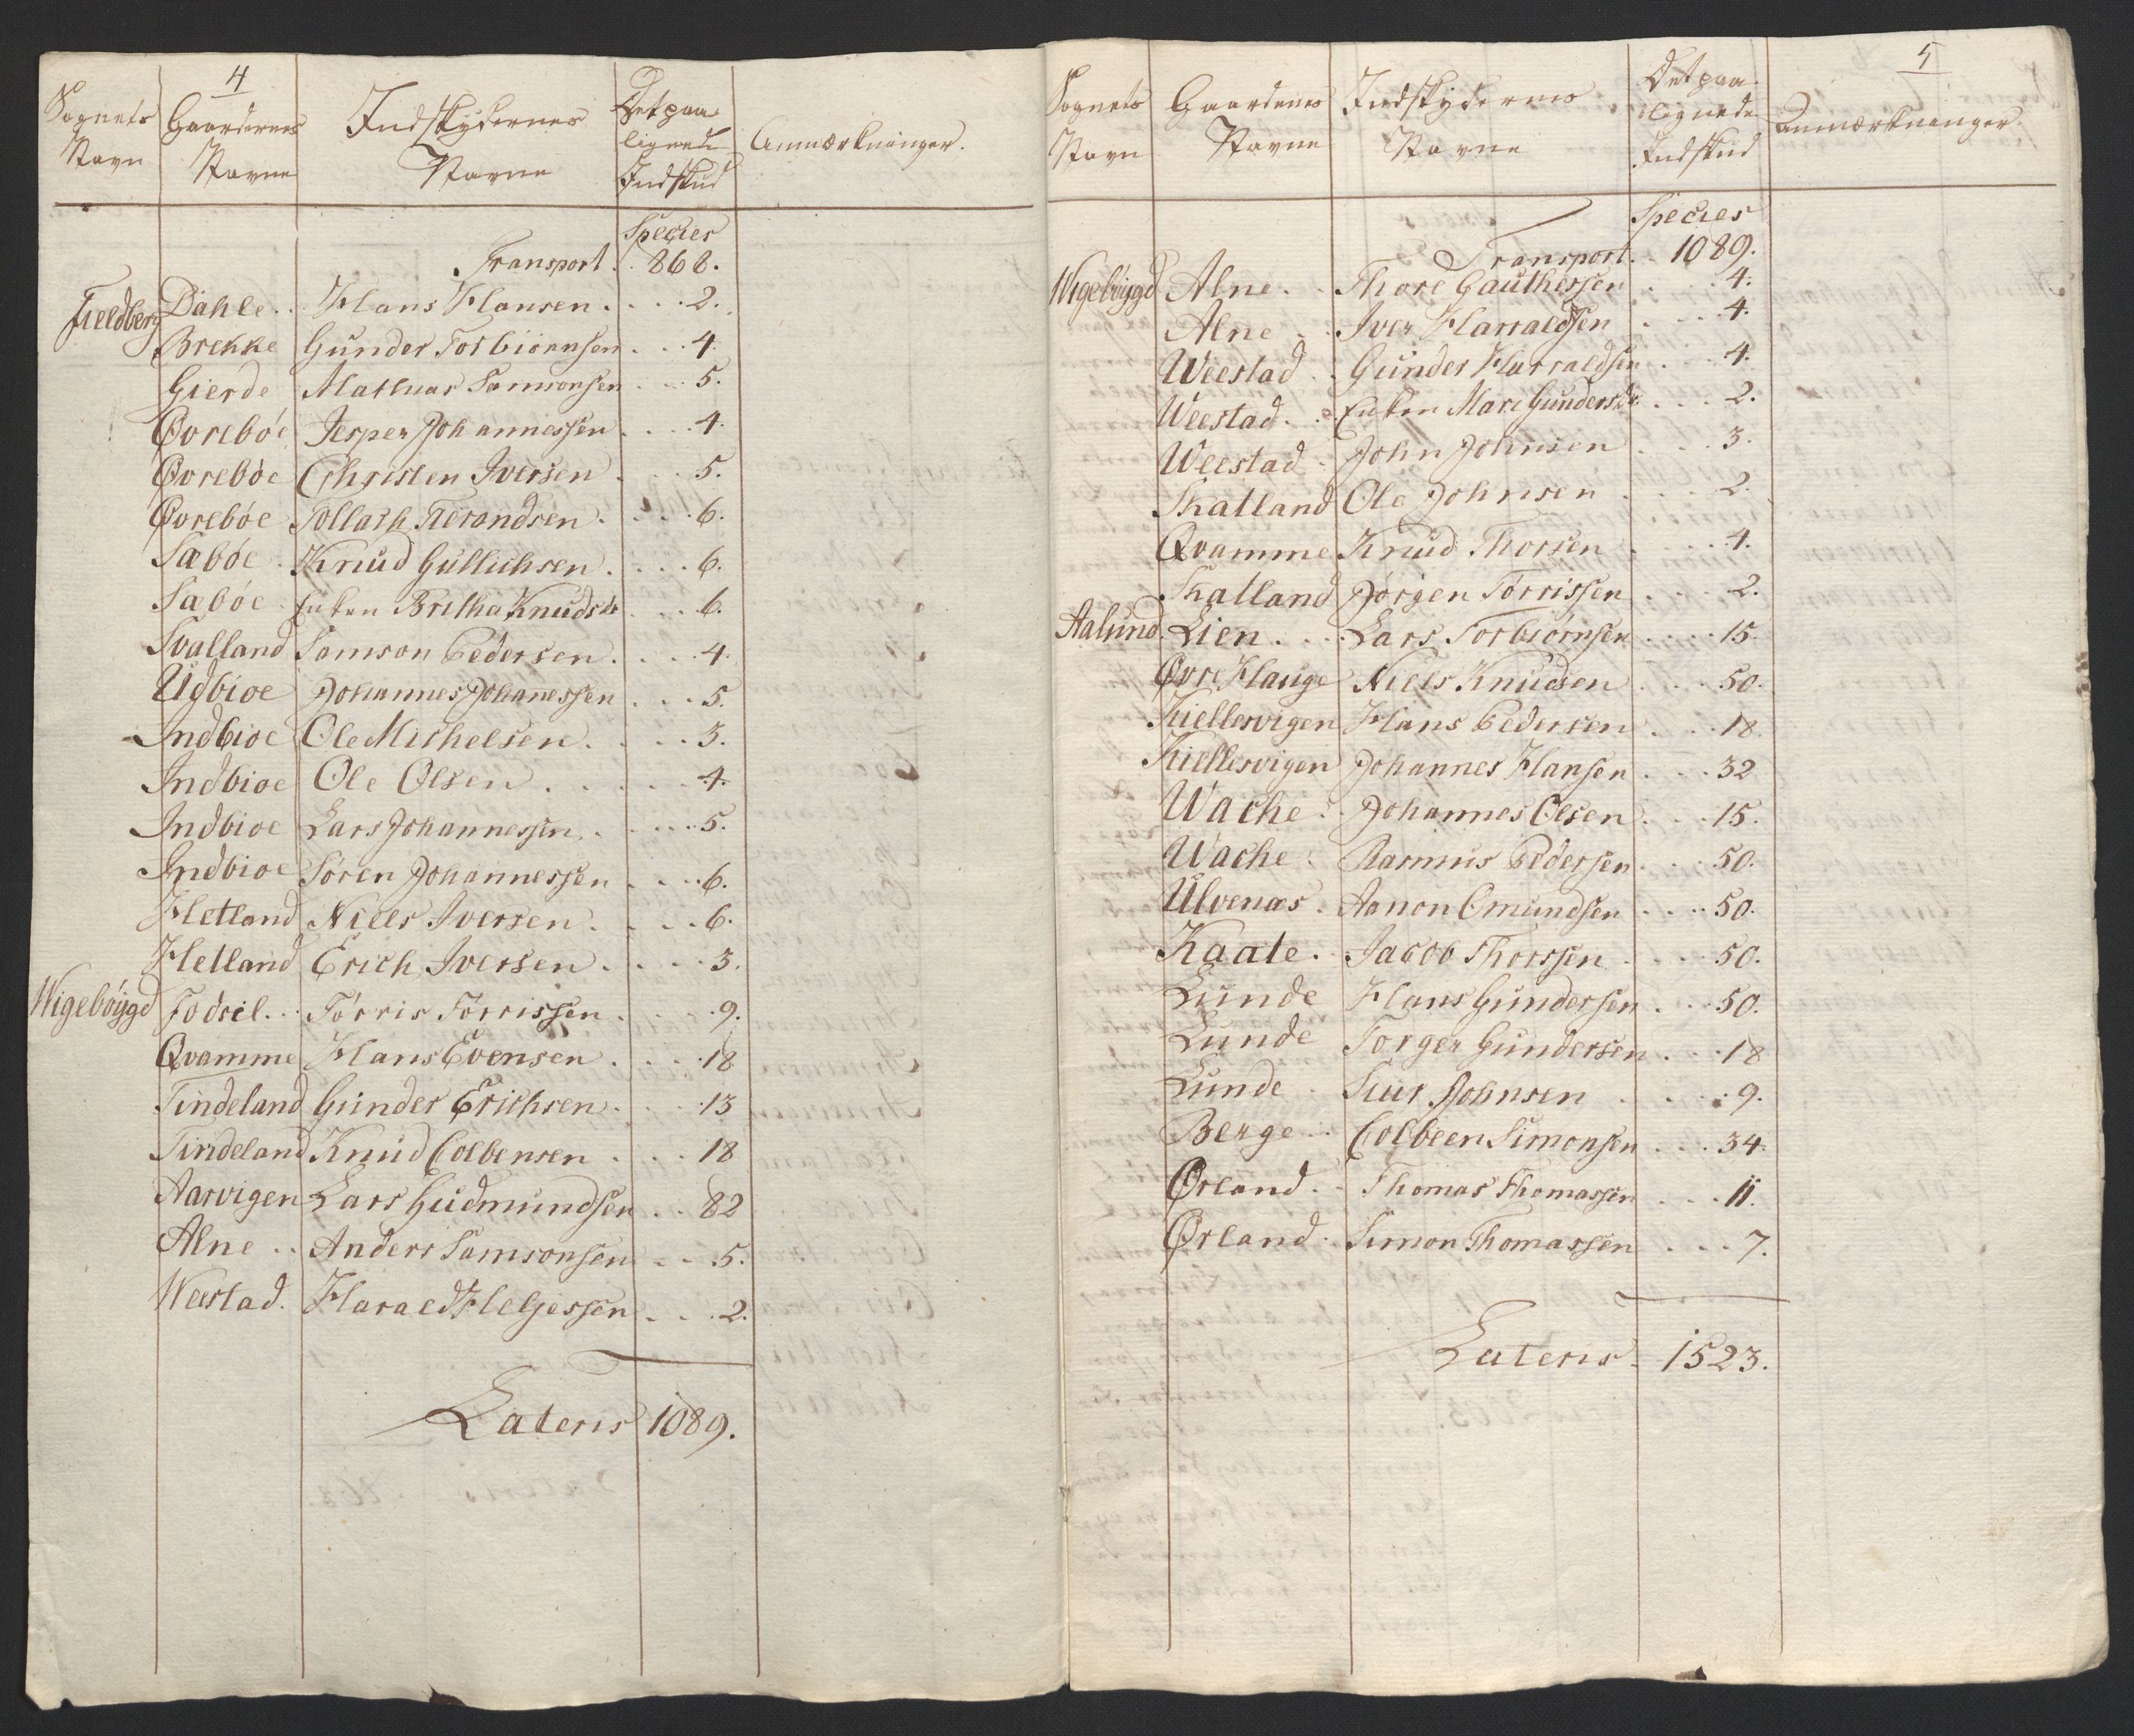 4
Sognets Gaardernes Indskydernes Det paa
Navn Navne Navne lignede Anmærkninger.
Indskud
Species
Transport . . 868.
Fieldberg Dahle . . Hans Hansen . . . . 2.
Brekke Gunder Torbiørnsen . . . 4.
Gierde Mathias Samsonsen . . . 5.
Øvrebøe Jesper Johannessen . . . . 4.
Øvrebøe Christen Iversen . . . . 5.
Øvrebøe Tollach Terandsen . . . . 6.
Sæbøe . Knud Gullichsen . . . . 6.
Sæbøe . Enken Britha Knudsdr . . . 6.
Svalland Samson Pedersen . . . . 4.
Udbioe Johannes Johanessen . . . 5.
Indbioe Ole Michelsen . . . . 3.
Indbioe Ole Olsen . . . . . 4.
Indbioe Lars Johannessen . . . . . 5.
Indbioe Søren Johannessen . . . . 6.
Hetland Niels Iversen . . . . 6.
Hetland Erich Iversen . . . . . 3.
Wigebøygd Fodsel . . . Tørris Tørrissen . . . . 9.
Qvamme Hans Evensen . . . . . 18
Tindeland Gunder Erichsen . . . . 13
Tindeland Knud Colbensen . . . . 18
Aarvigen Lars Gudmundsen . . . 82
Alne . . Anders Samsonsen . . . 5.
Weestad . Harald Helgessen . . . 2.
Lateris 1089.
5
Sognets Gaardenes Indskydernes Det paa
Navn Navne Navne lignede Anmærkninger.
Indskud
Species
Transport . . 1089.
Wigebøygd Alne . . Thore Gauthessen . . . 4.
Alne . . Iver Harraldsen . . . . 4.
Weestad . . Gunder Harraldsen . . . 4.
Weestad . . Enken Mari Gundersdr. . . . 2.
Weestad . John Johnsen . . . 3.
Skatland Ole Johnsen . . . 2.
Qvamme Knud Thorsen . . . . 4.
Skatland Jørgen Tørrissen . . . . 2.
Aalund. Lien . . . . Lars Torbiørnsen . . . . 15.
Øvre Hauge Niels Knudsen . . . . 50.
Kiellesvigen Hans Pedersen . . . 18.
Kiellesvigen Johannes Hansen . . . . 32
Wache . . Johannes Olsen . . . . 15.
Wache . Rasmus Pedersen . . . 50.
Ulvenæs . Aanon Omundsen . . . . 50.
Kaate . . Jacob Thorssen . . . . 50.
Lunde Hans Gundersen . . . 50.
Lunde Torger Gundersen . . . . 18
Lunde . Siur Johnsen . . . . . 9.
Berge . . Colbeen Simonsen . . . 34.
Ørland . . Thomas Thomassen . . . . 11.
Ørland . Simon Thomassen . . . . 7.
Lateris . 1523.